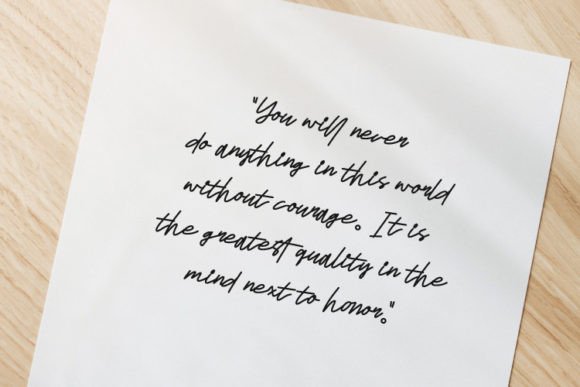 "You will never
do anything in this world
without courage. It is
the greatest quality in the
mind next to honor."